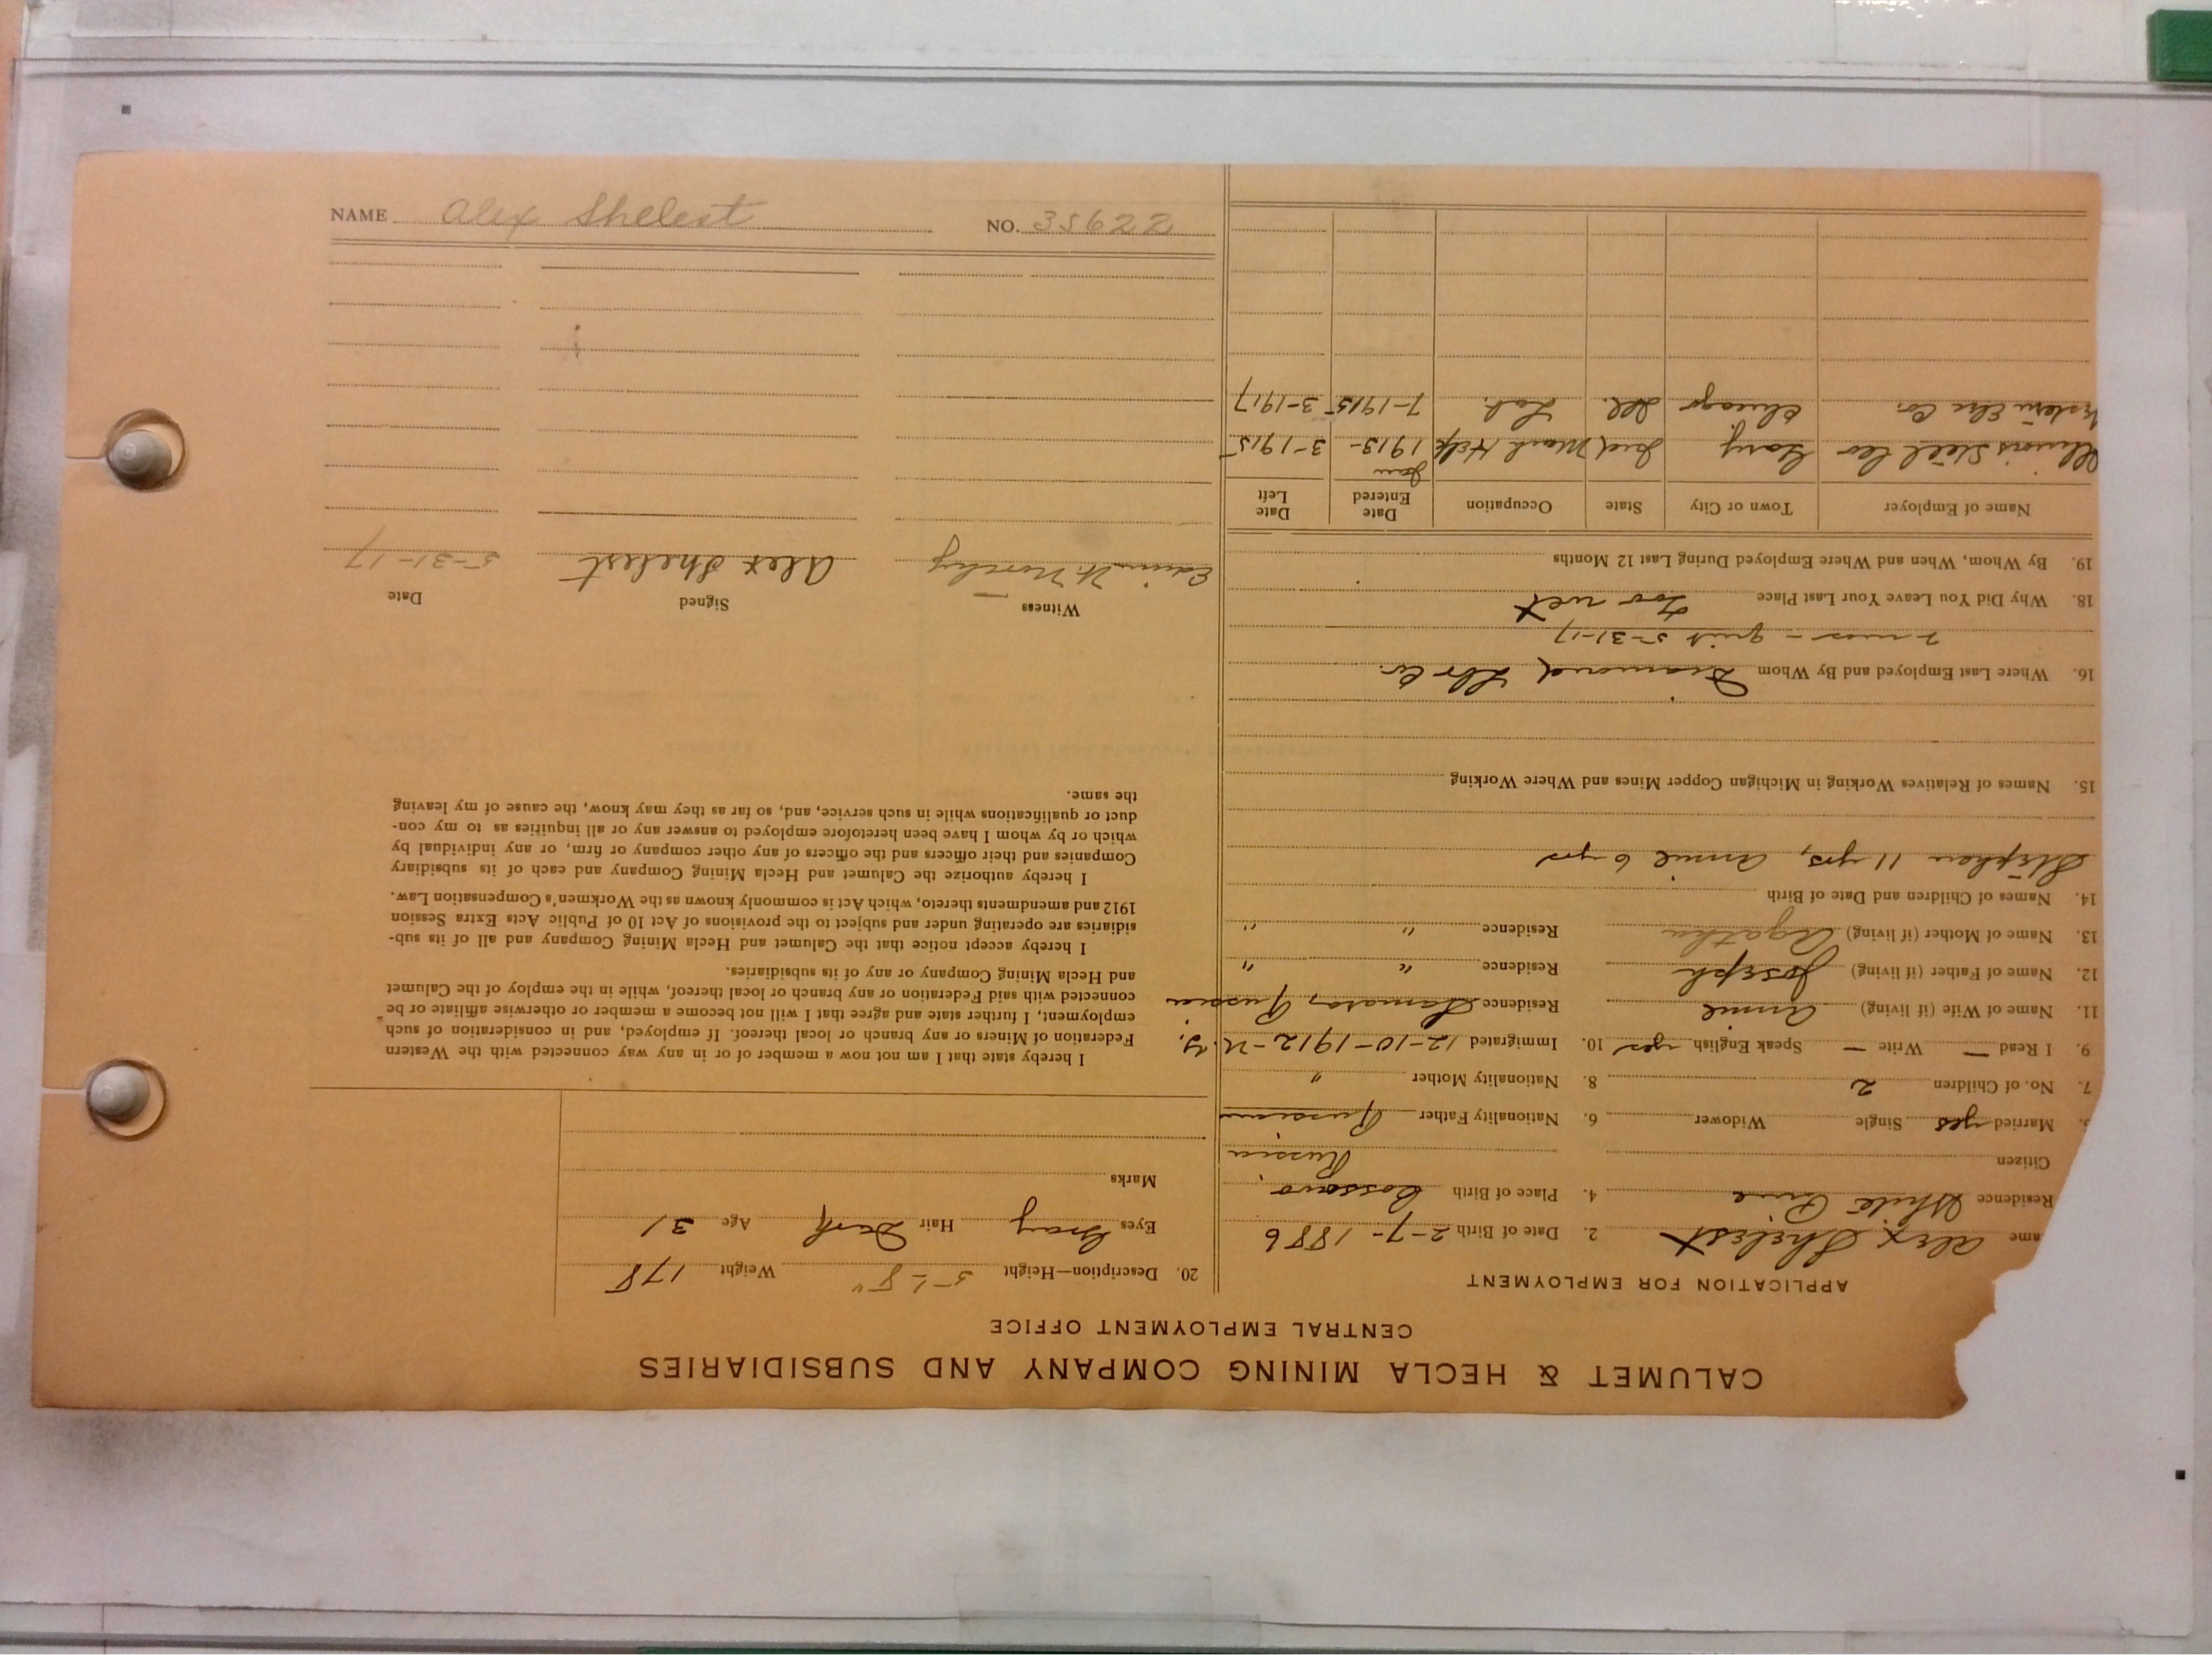 CALUMET & HECLA MINING COMPANY AND SUBSIDIARIES
CENTRAL EMPLOYMENT OFFICE
APPLICATION FOR EMPLOYMENT
ame Alex Shelest 2. Date of Birth 2-7-1886
Residence White Pine 4. Place of Birth
Citizen Russia
Married yes Single Widower 6. Nationality Father Russian
7. No. of Children 2 8. Nationality Mother "
9. I Read — Write — Speak English yes 10. Immigrated 12-10-1912-N.Y.
11. Name of Wife (if living) Annie Residence Samara, Russia
12. Name of Father (if living) Joseph Residence " "
13. Name of Mother (if living) Agatha Residence " "
14. Names of Children and Date of Birth
Stephen 11 yrs, Annie 6 yrs
15. Names of Relatives Working in Michigan Copper Mines and Where Working
16. Where Last Employed and By Whom Diamond Lbr Co.
2 mos - quit 5-31-17
18. Why Did You Leave Your Last Place Too wet
19. By Whom, When and Where Employed During Last 12 Months
Name of Employer Town or City State Occupation Date Entered Date Left
Illinois Steel Co Gary Ind Mach Help Jan 1913- 3-1915
estern Elec Co. Chicago Ill. Lab. 7-1915- 3-1917
20. Description—Height 5' 8" Weight 178
Eyes Gray Hair Dark Age 31
Marks
I hereby state that I am not now a member of or in any way connected with the Western
Federation of Miners or any branch or local thereof. If employed, and in consideration of such
employment, I further state and agree that I will not become a member or otherwise affiliate or be
connected with said Federation or any branch or local thereof, while in the employ of the Calumet
and Hecla Mining Company or any of its subsidiaries.
I hereby accept notice that the Calumet and Hecla Mining Company and all of its sub-
sidiaries are operating under and subject to the provisions of Act 10 of Public Acts Extra Session
1912 and amendments thereto, which Act is commonly known as the Workmen's Compensation Law.
I hereby authorize the Calumet and Hecla Mining Company and each of its subsidiary
Companies and their officers and the officers of any other company or firm, or any individual by
which or by whom I have been heretofore employed to answer any or all inquiries as to my con-
duct or qualifications while in such service, and, so far as they may know, the cause of my leaving
the same.
Witness Signed Date
Edwin Alex Shelest 5-31-17
NAME Alex Shelest NO. 35622